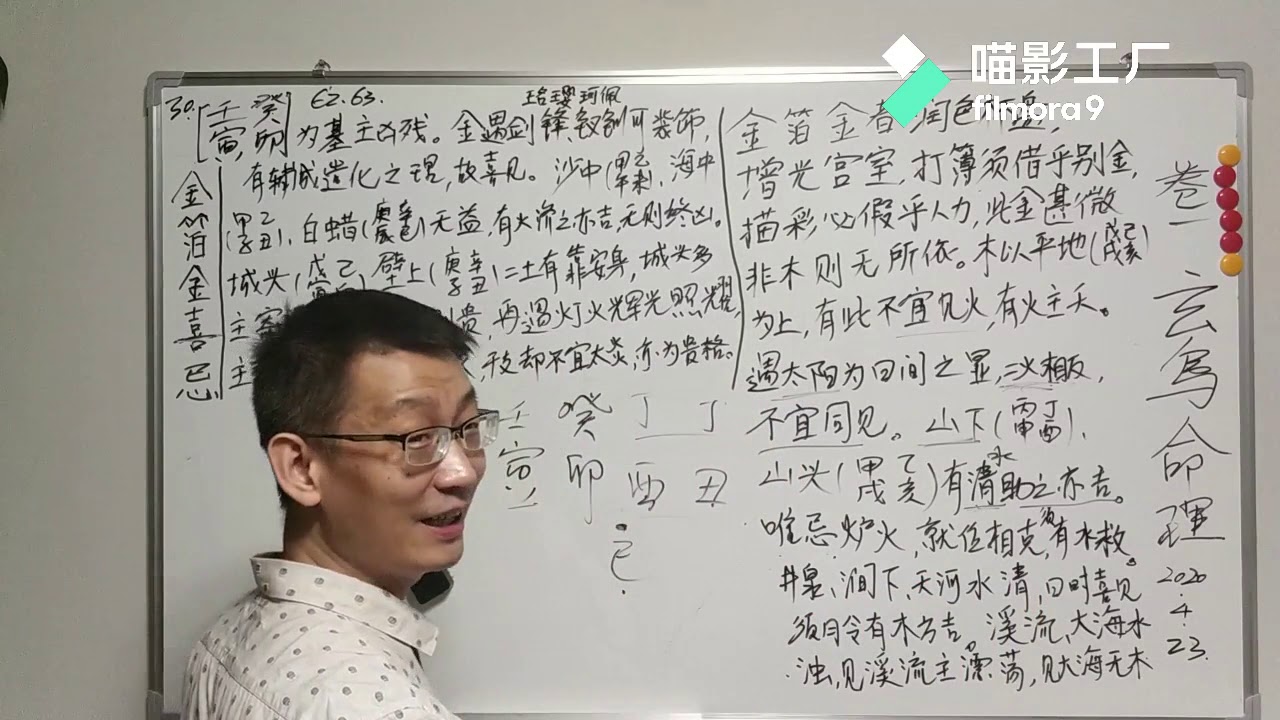 喵影工厂
filmora9
30. 壬寅 癸卯 EZ.63. 珞璎珂佩
为基主凶残。金遇剑锋,钗钏可装饰,
有辅成造化之理,故喜见。沙中(甲午 乙未),海中
(甲子 乙丑),白蜡(庚辰 辛巳)无益,有火济之亦吉,无则终凶。
城头(戊寅 己 壁上(庚子 辛丑)二土有靠安身,城头多
主 贵,再遇灯火辉光照耀,
主 却不宜太炎,亦为贵格。
金箔金喜忌
金箔金者润色
增光宫室,打簿须借乎别金,
描彩必假乎人力,此金甚微
非木则无所依。木以平地(戊戌 己亥)
为上,有此不宜见火,有火主夭。
遇太阳为日间之显,二火相反,
不宜同见。山下(丙申 丁酉),
山头(甲戌 乙亥)有清水助之亦吉。
唯忌炉火,就位相克,须有水救。
井泉,涧下,天河水清,日时喜见
须月令有木方吉。溪流,大海水
浊,见溪流主漂荡,见大海无木
壬 癸 丁 丁
寅 卯 酉 丑
卷一 玄鸟命理
2020
4
23.